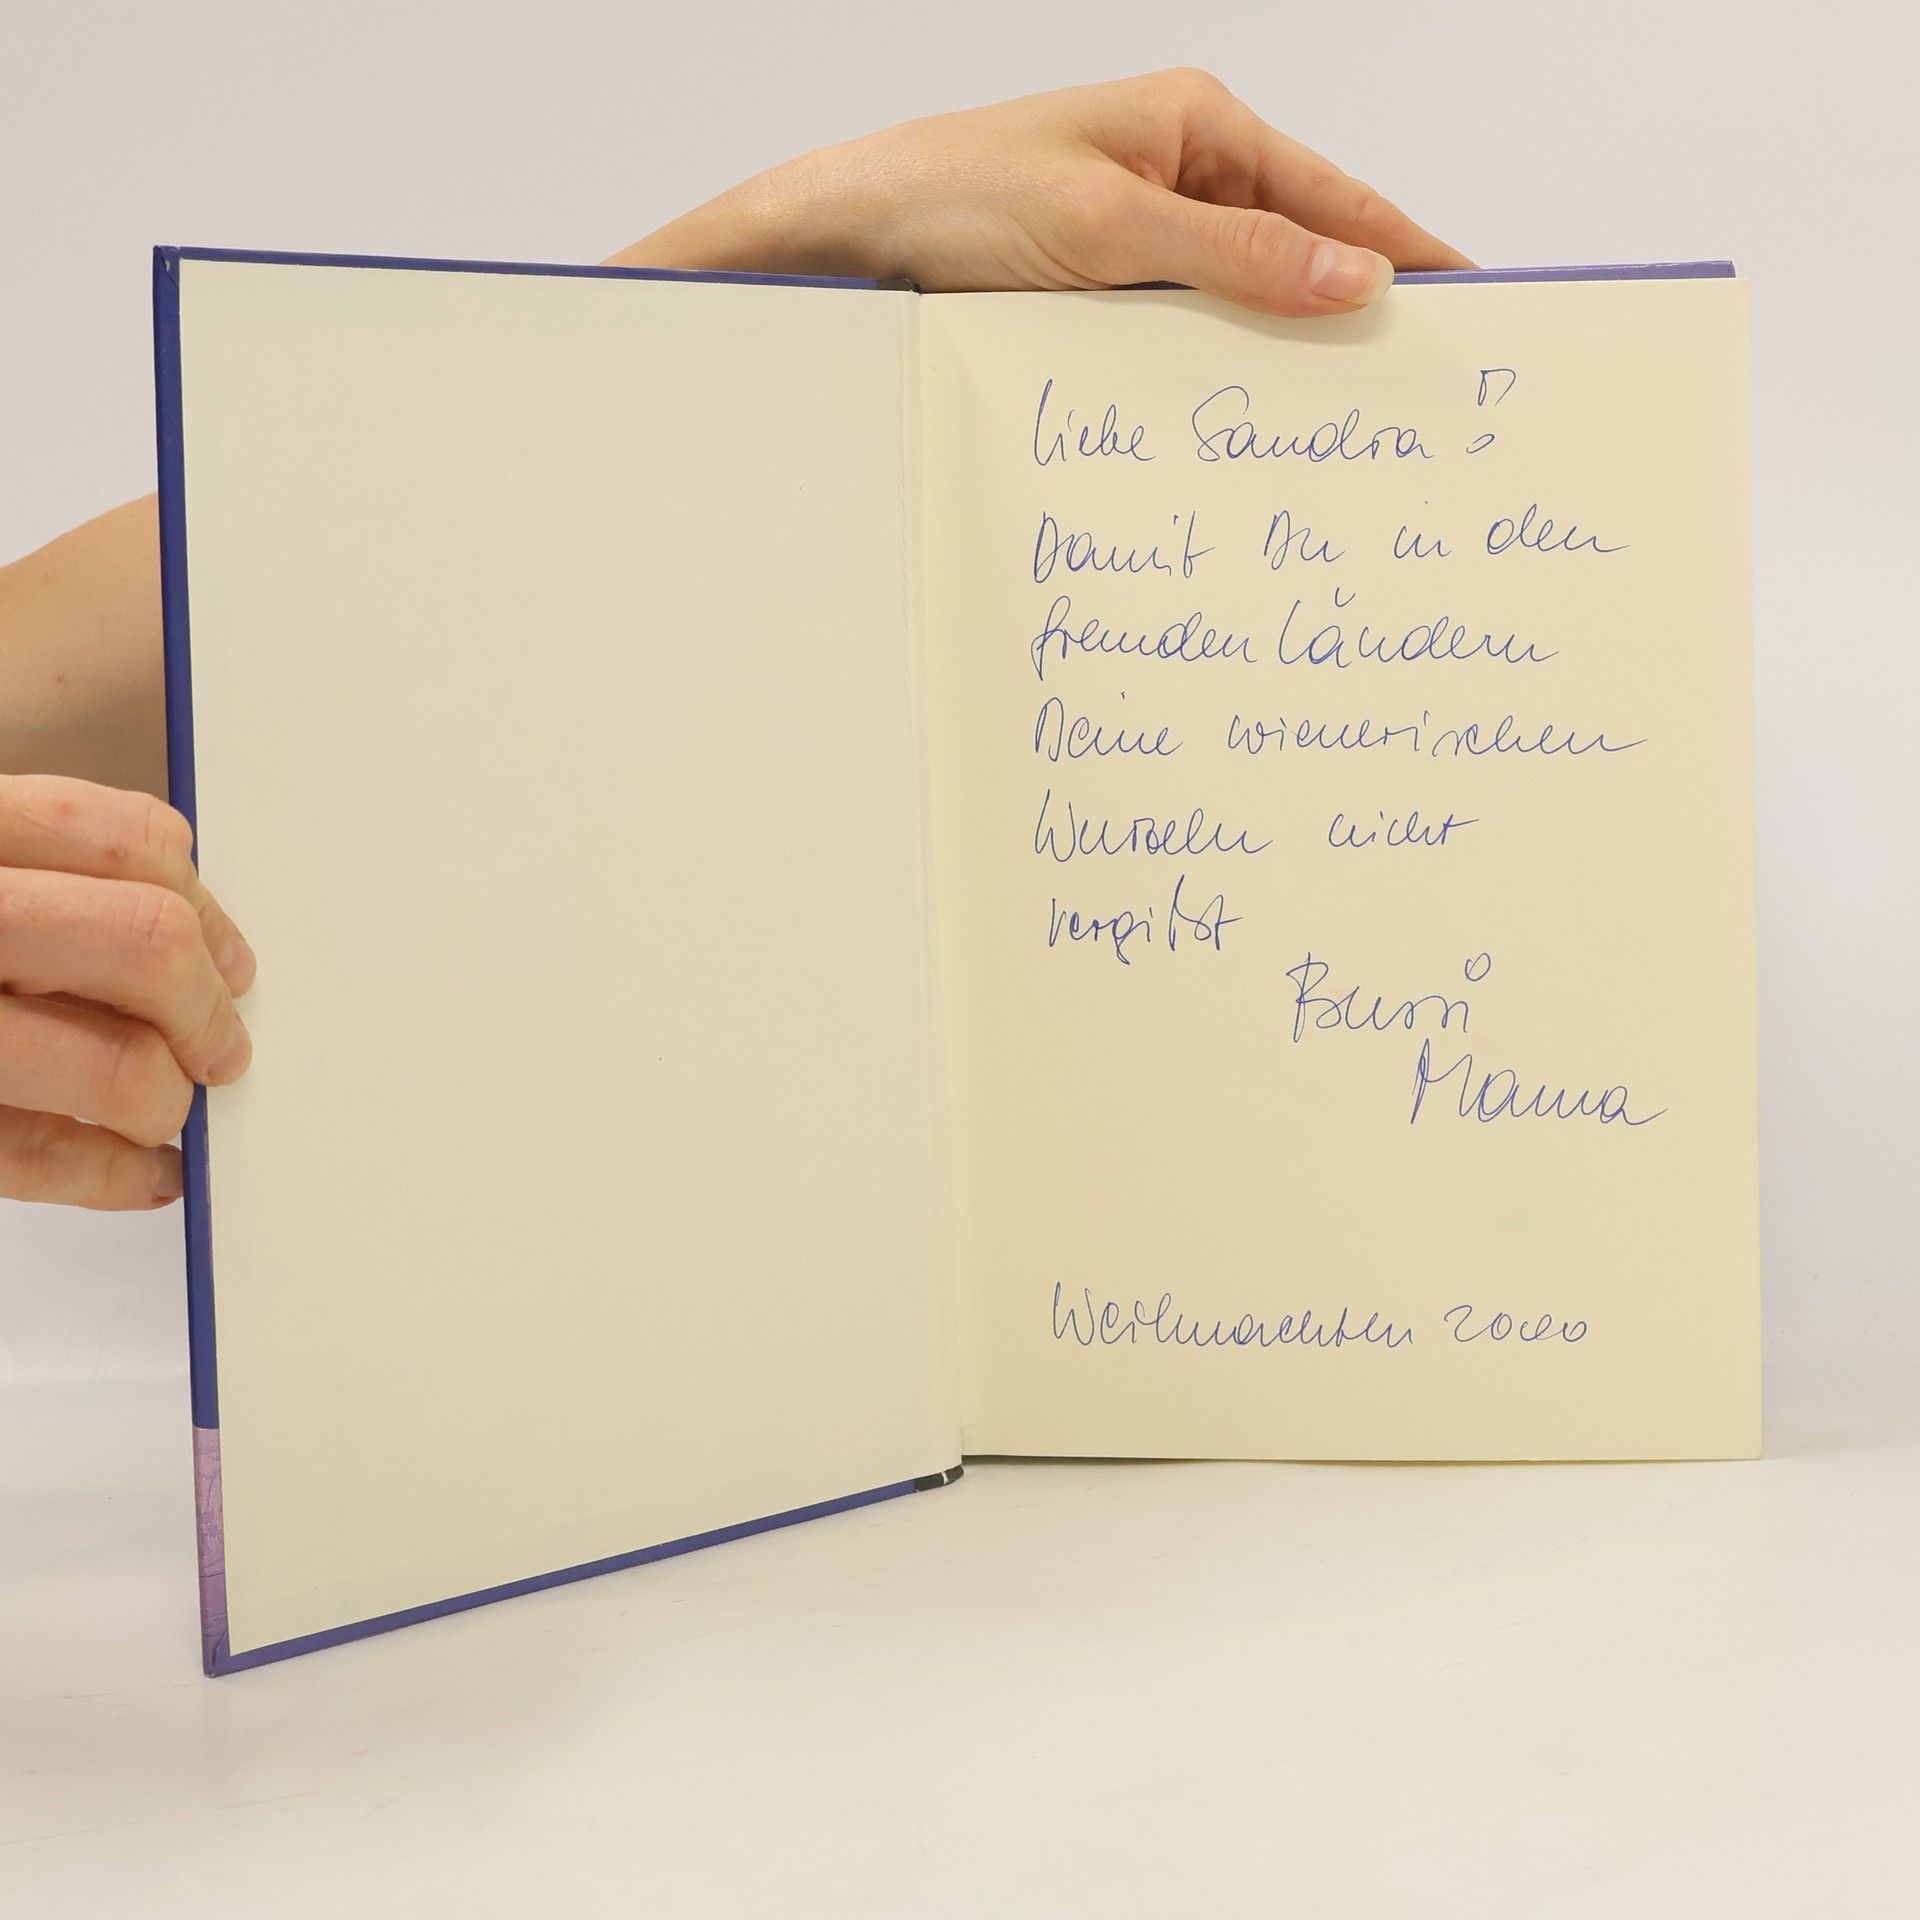 Liebe Sandra!
Damit Du in den
fremden Ländern
Deine wienerischen
Wurzeln nicht
vergißt
Bussi
Mama
Weihnachten 2000